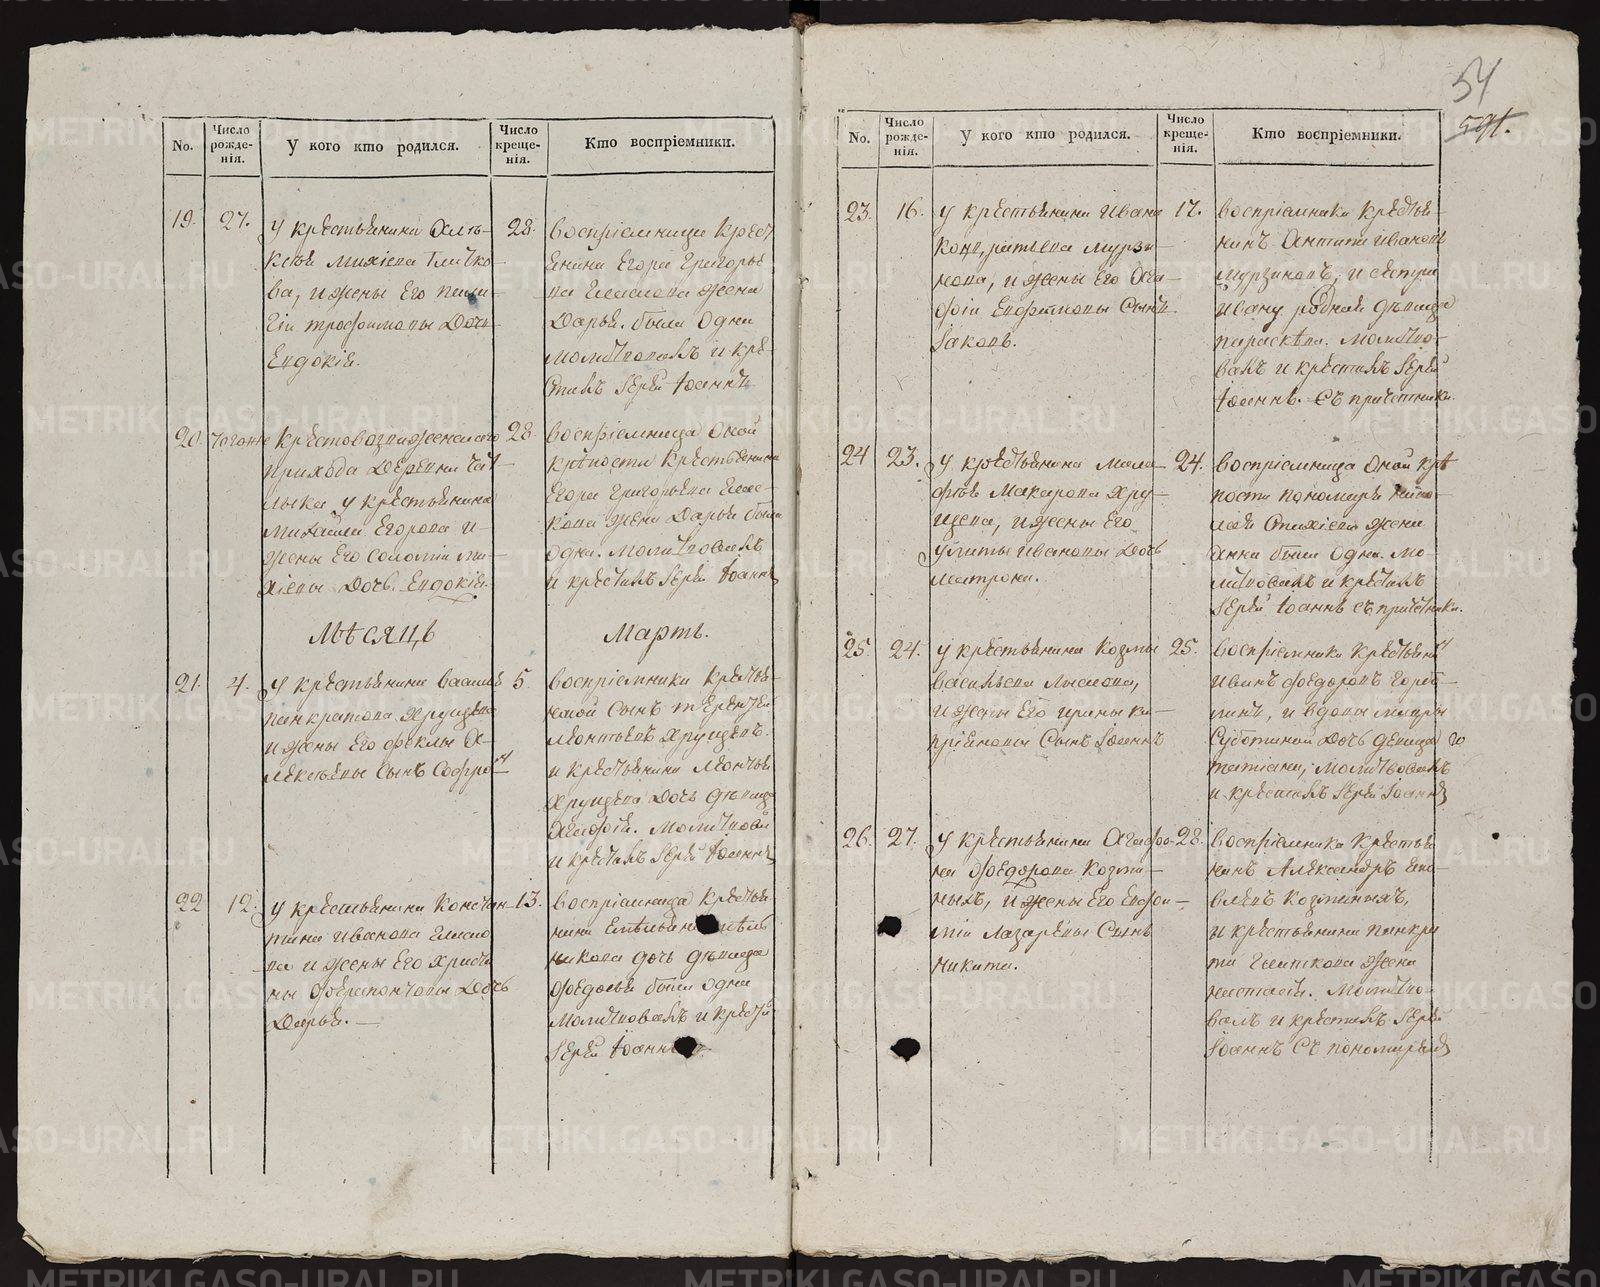 54
591.
No.
Число рожде-нія.
У кого кто родился.
Число креще-нія.
Кто воспріемники.
19.
27.
У крестьянина Алъ-
ксѣя
ва, и жены Его
гіи трофимовы Дочь
Евдокія.
28.
воспріемница Крест
янина Егора Григорье
ва жена
Дарья. была Одна
молитвовалъ и кре-
стилъ Іерей Іоаннъ
20.
Тогоже
Крестовоздвиженскаго
прихода Деревни
у крестьянина
михаила Егорова и
жены Его соломіи ми-
хіевы Дочь Евдокія.
28.
воспріемница Оной
крѣпости Крестьянина
Егора Григорьева
кова жена Дарья была
одна. молитвовалъ
и крестилъ Іерей Іоаннъ
Мѣсяцъ
Мартъ.
21.
4.
У крестьянина василья
панкратова Хрущева
и жены Его феклы А-
лексѣевы Сынъ Софро
5.
воспріемники Крестья
сынъ терентей
леонтьевъ Хрущевъ.
и крестьянина леонтья
Хрущева Дочь дѣвица
Агафія. молитвовал
и крестилъ Іерей Іоаннъ
22
12.
У крестьянина констан-
тина Иванова
ва и жены Его Христи
ны ферапонтовы Дочь
Дарья.
13.
воспріемница Крестья
нина Емельяна
никова дочь дѣвица
Федосья была одна
молитвовалъ и крести
Іерей Іоаннъ
No.
Число рожде-нія.
У кого кто родился.
Число креще-нія.
Кто воспріемники.
23.
16.
У крестьянина Ивана
кондратьева мурзи-
нова, и жены Его Ага-
фіи Евфимовы Сынъ
Іаковъ.
17.
воспріемники Крестья-
нинъ Антипа Ивановъ
мурзиновъ, и сестра
Ивану родная дѣвица
параскева. молитво-
валъ и крестилъ Іерей
Іоаннъ. Съ причетники.
24
23.
У крестьянина мала-
фѣя Макарова Хру-
щева, и жены Его
улиты Ивановы Дочь
матрона.
24.
воспріемница Оной крѣ
пости пономаря
жена
Анна была Одна. мо-
литвовалъ и крестилъ
Іерей Іоаннъ съ причетники.
25.
24.
у крестьянина козмы
васильева
и жены Его ирины ки-
пріяновы Сынъ Іоаннъ
25.
воспріемники Крестьянин
Иванъ федоровъ
и вдовы
Суботиной Дочь девица
татіана, молитвовалъ
и крестилъ Іерей Іоаннъ
26.
27.
У крестьянина Агафо-
на Федорова Козми-
ныхъ, и жены Его Евфи-
міи Лазаревы Сынъ
Никита.
28.
воспріемники Крестья
нинъ Александръ
Козминыхъ,
и крестьянина панкра
та жена
настасія. молитво-
валъ и крестилъ Іерей
Іоаннъ Съ пономарями
METRIKI.GASO-URAL.RU